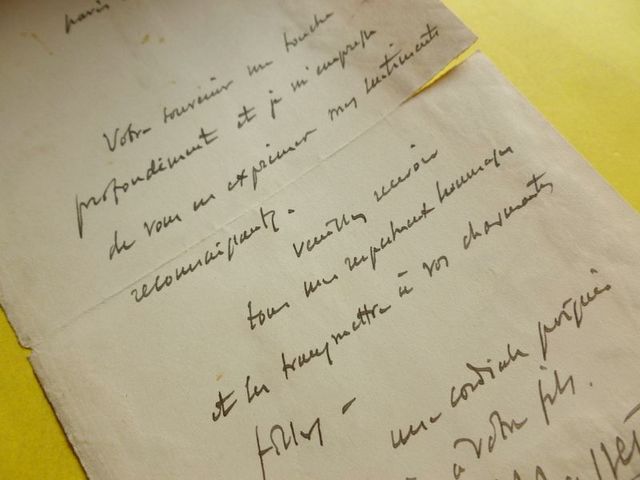 Paris
Votre souvenir me touche
profondément et je m'empresse
de vous en exprimer mes sentiments
reconnaissants.
Veuillez recevoir
tous mes respectueux hommages
et les transmettre à vos charmantes
filles -
une cordiale poignée
à votre fils.